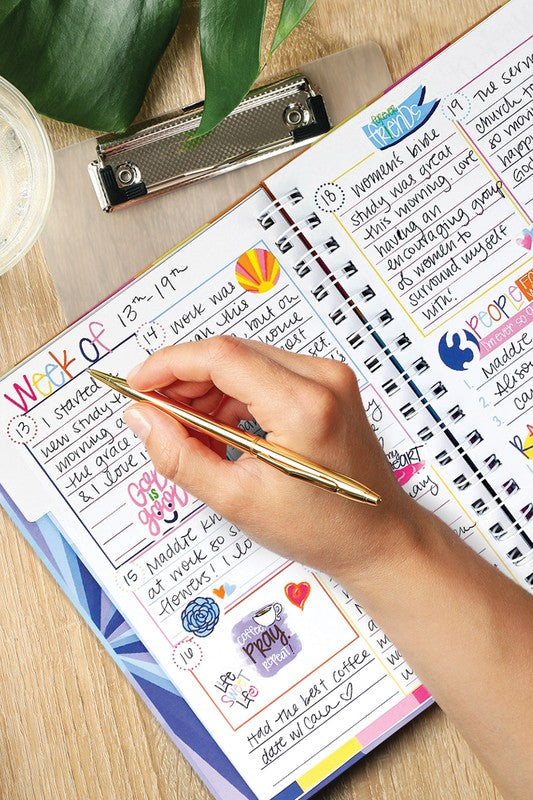 week of 13th-19th
13
I started
new study th
morning a
the grace o
& I love
God
is
good
14
work was
an this
but on
home
rest
set.
15
Maddie kn
at work so s
flowers! I lo
16
Life
Sweet
Life
coffee
PRAY
REPEAT
Had the best coffee
date w/ Cara ♡
heart
18
friends
women's bible
study was great
this morning. Love
having an
encouraging group
of women to
surround myself
with!
19
The serm
church to
so movi
happy
God
3 PEOPLE
I'm ever so g
1. Maddie
2. Alison
3. Car